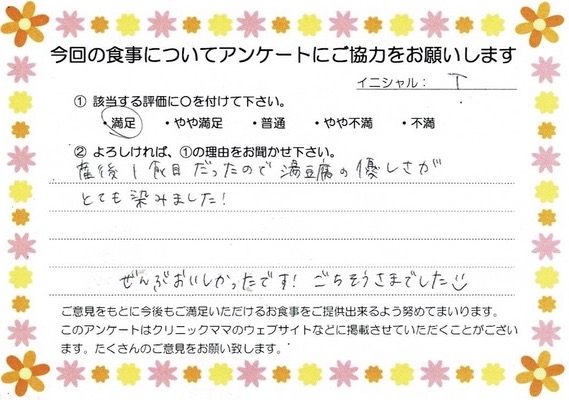 今回の食事についてアンケートにご協力をお願いします
イニシャル： T
① 該当する評価に○を付けて下さい。
・満足 ・やや満足 ・普通 ・やや不満 ・不満
② よろしければ、①の理由をお聞かせ下さい。
産後1食目だったので湯豆腐の優しさが
とても染みました!
ぜんぶおいしかったです! ごちそうさまでした
ご意見をもとに今後もご満足いただけるお食事をご提供出来るよう努めてまいります。
このアンケートはクリニックママのウェブサイトなどに掲載させていただくことがござい
ます。たくさんのご意見をお願い致します。